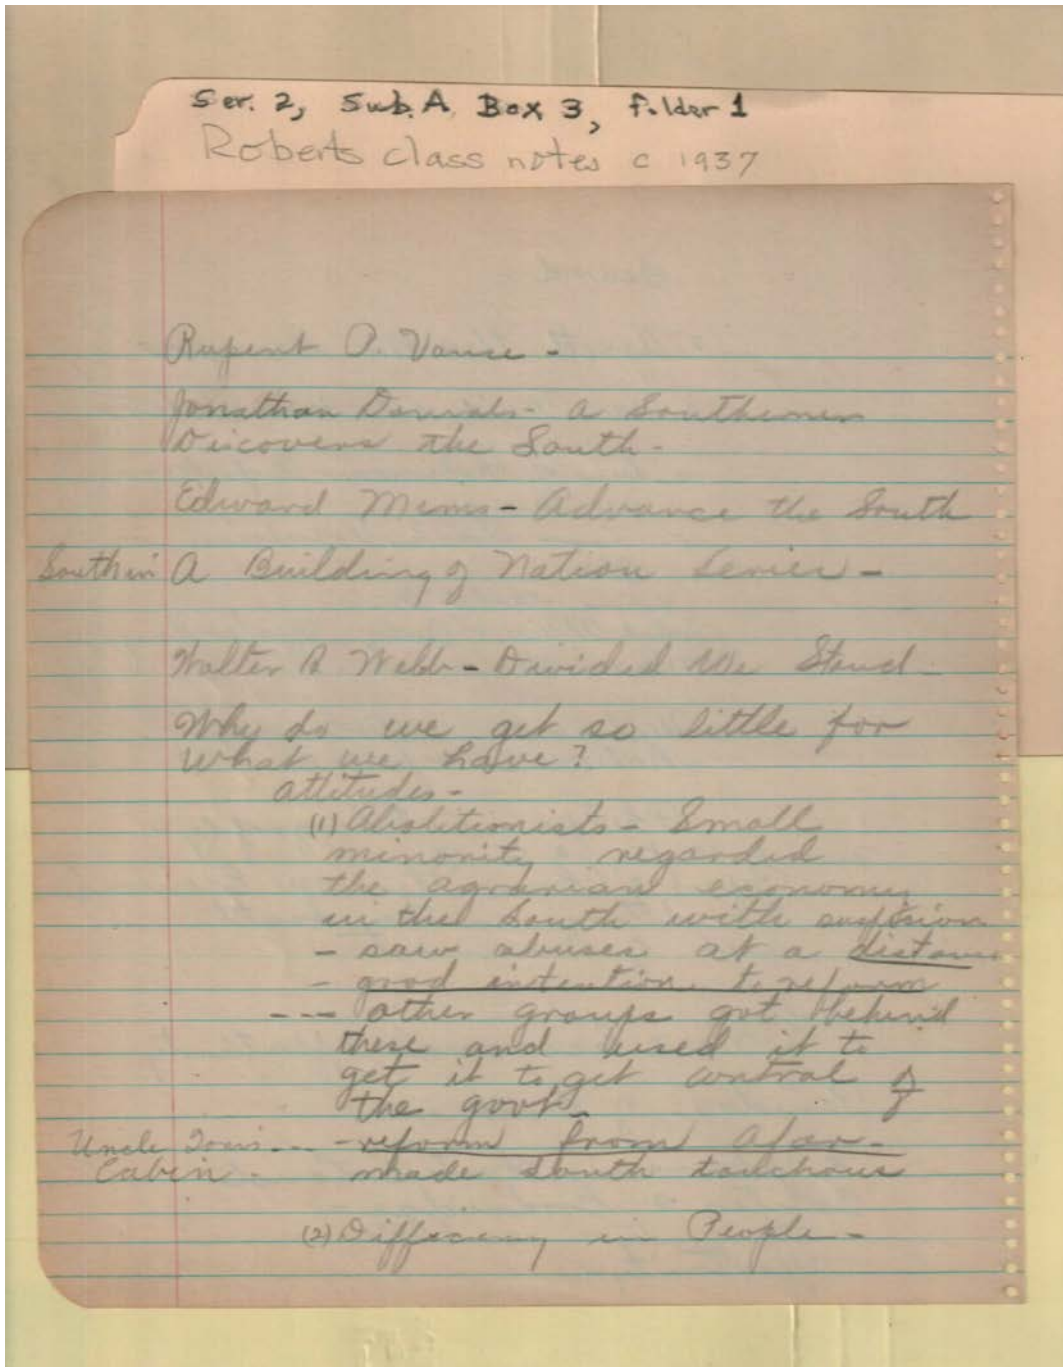 Ser. 2, Sub. A, Box 3, folder 1
Roberts class notes c 1937
Rupert A. Vance -
Jonathan Daniels - A Southerner
Discovers the South -
Edward Mims - Advance the South
South in A Building of Nation Series -
Walter P Webb - Divided We Stand
Why do we get so little for
what we have?
attitudes -
(1) Abolitionists - Small
minority regarded
the agrarian economy
in the South with
- saw abuses at a distance
- good intention to reform
--- other groups got behind
these and used it to
get it to get control of
the govt
Uncle Tom's --- - reform from Afar -
Cabin - made South
(2) in People -